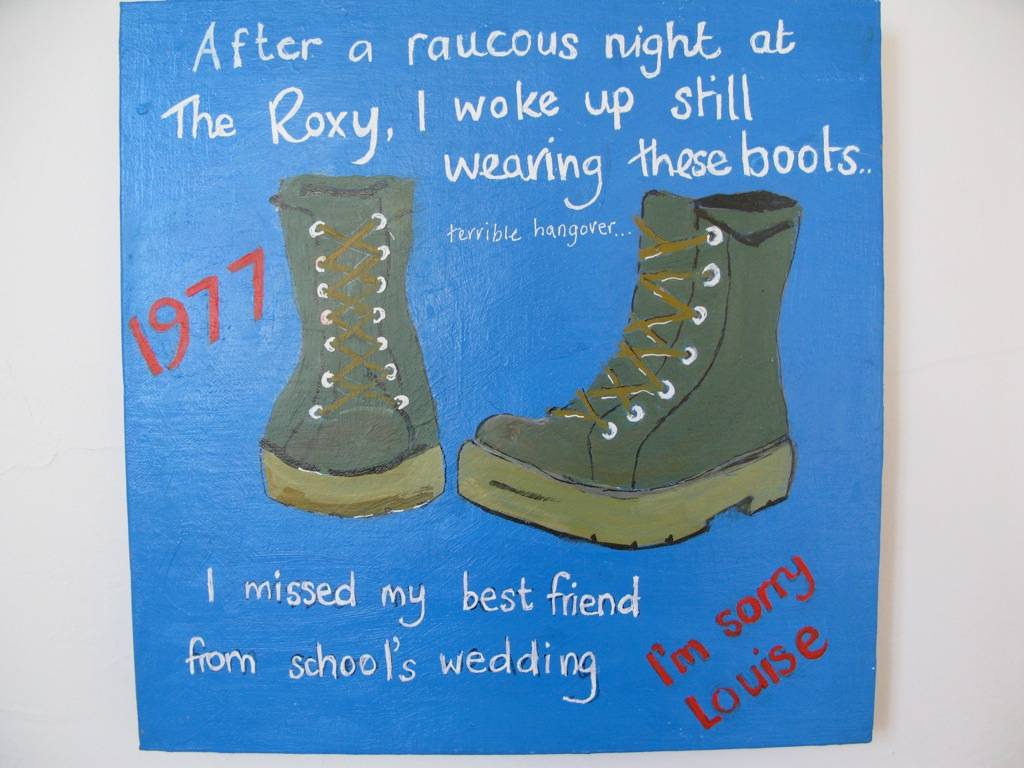 After a raucous night at
The Roxy, I woke up still
wearing these boots..
terrible hangover...
1977
I missed my best friend
from school's wedding
I'm sorry
Louise